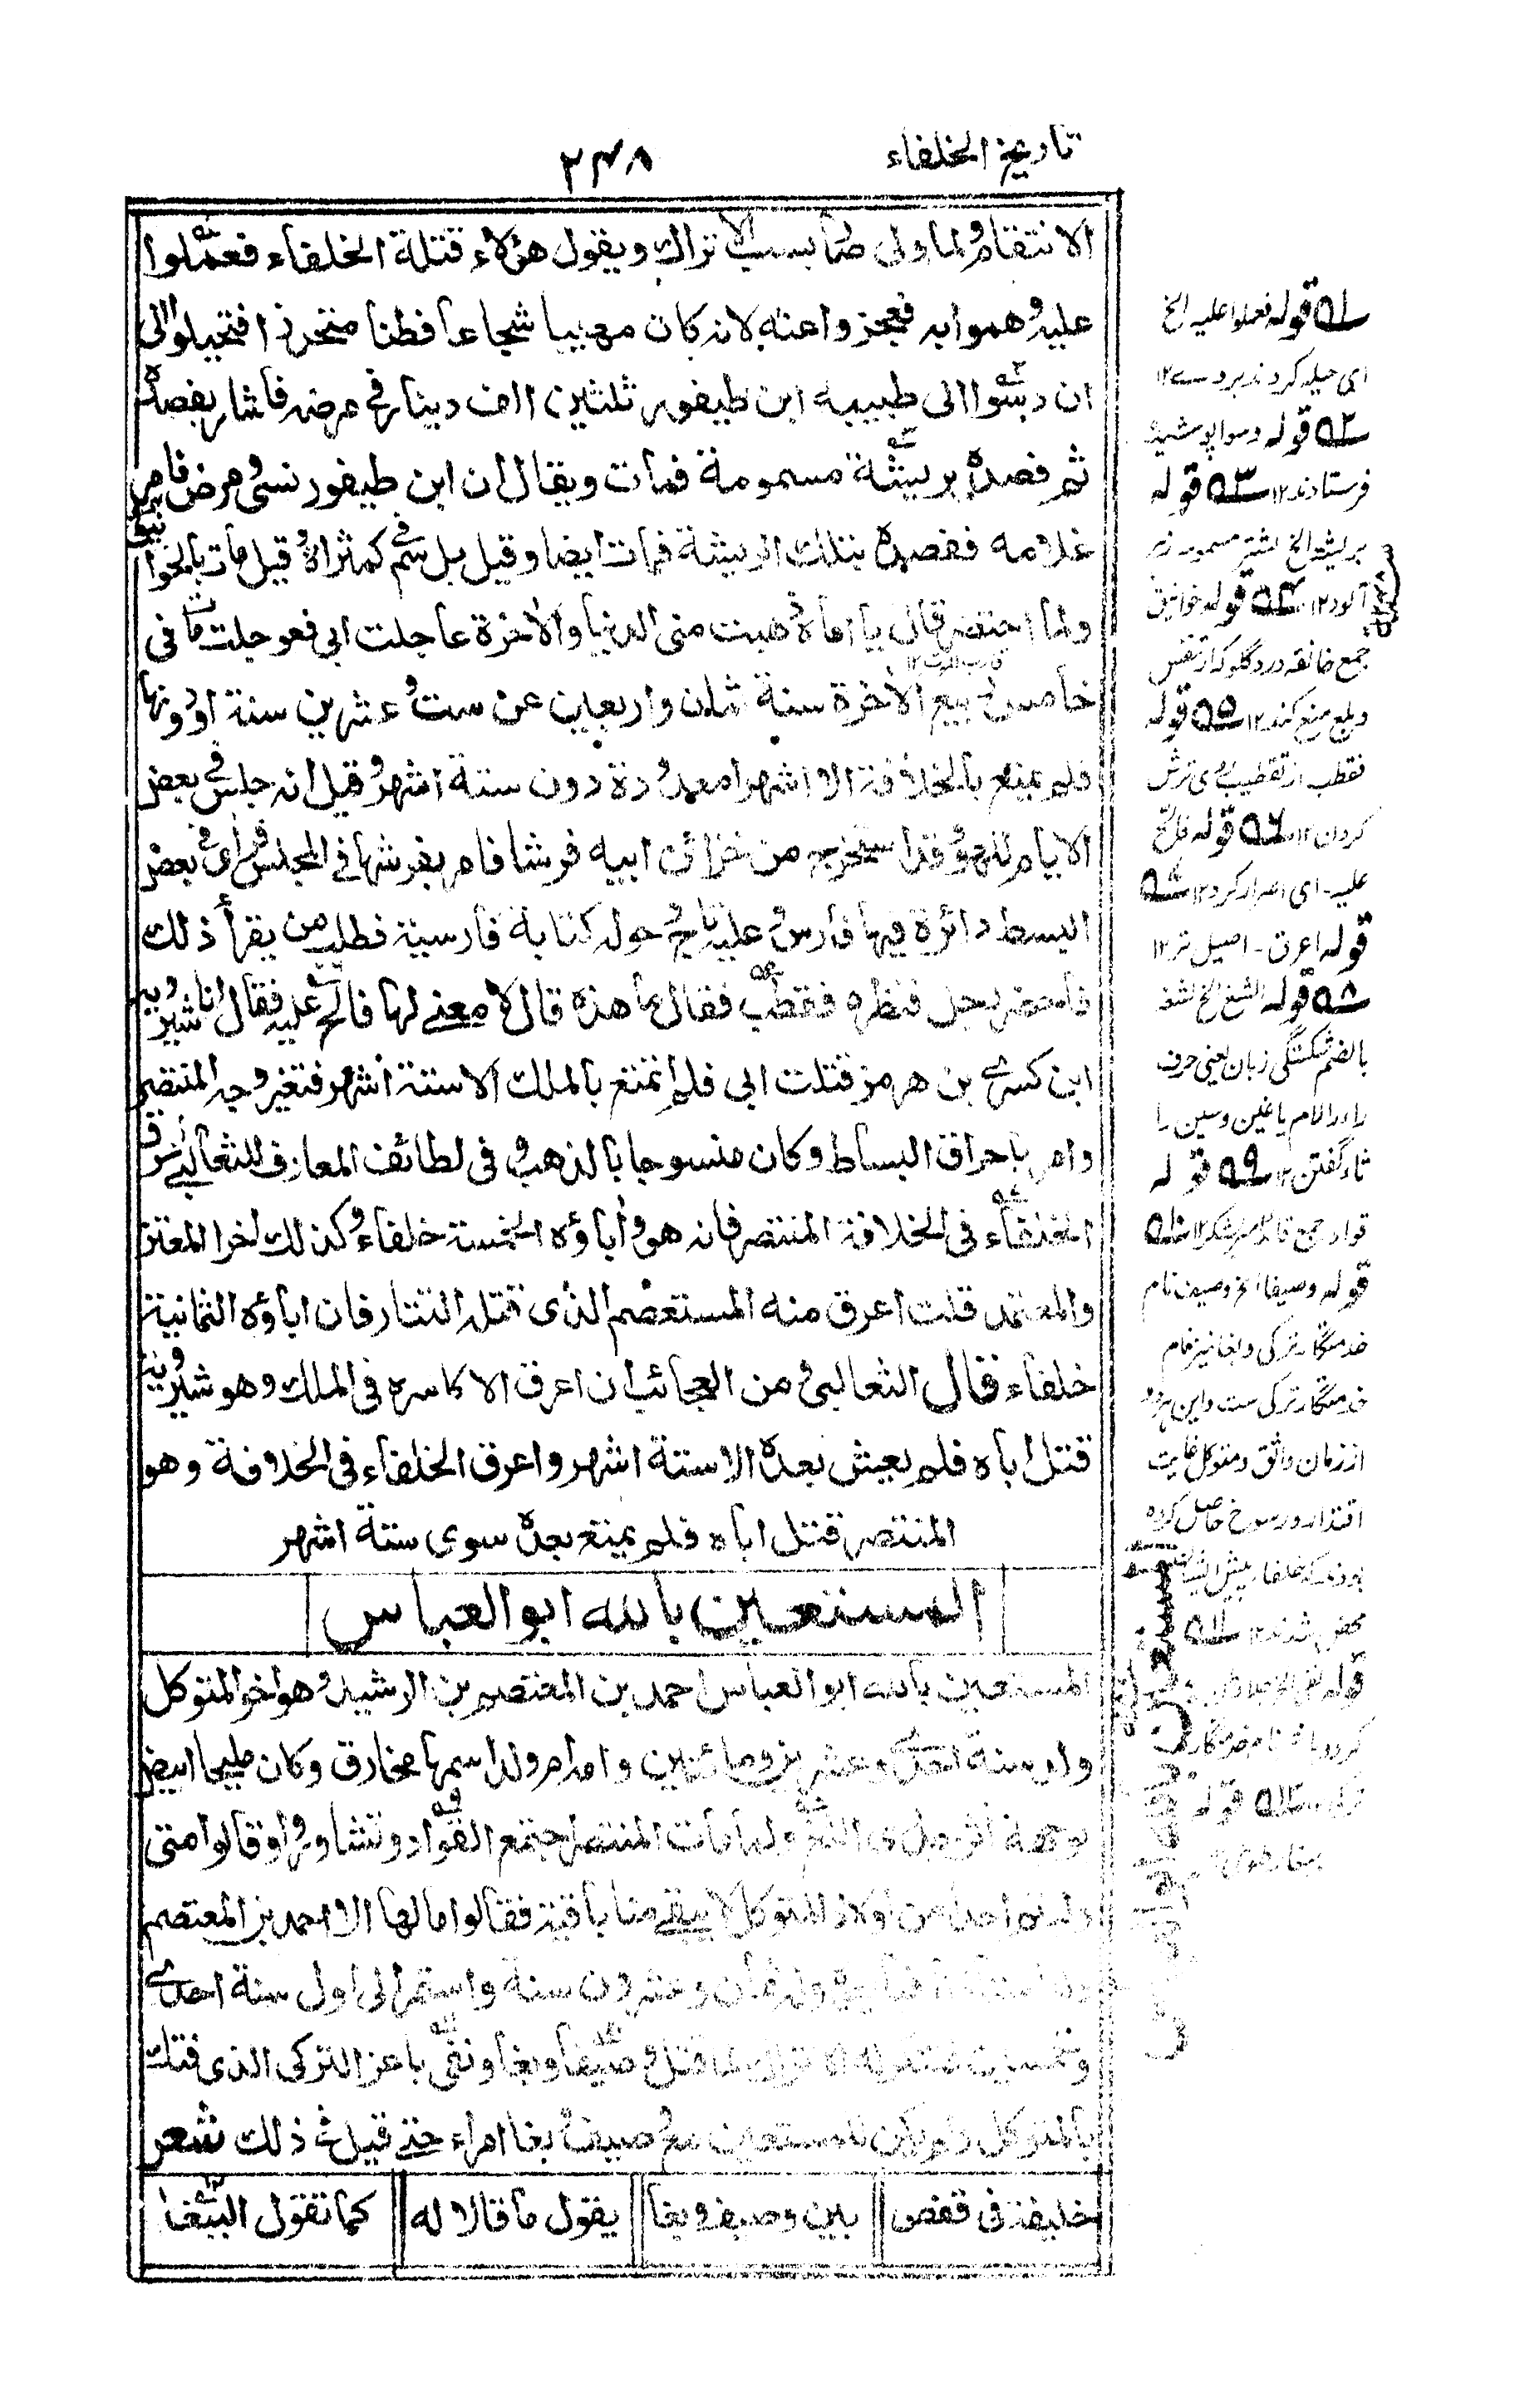 تاريخ الخلفاء
٢٤٨
الانتقام ولما ولى صار يسب الاتراك ويقول هؤلاء قتلة الخلفاء فعملوا
عليه وهموا به فعجزوا عنه لانه كان مهيبا شجاعا فطنا متحرزا فتحيلوا الى
ان دسوا الى طبيبه ابن طيفور ثلثين الف دينار فى مرضه فاشار بفصده
ثم فصده بريشة مسمومة فمات ويقال ان ابن طيفور نسى ومرض فامر
غلامه ففصده بتلك الريشة فمات ايضا وقيل بل سم فى كمثراة وقيل مات بالخوانيق
ولما احتضر قال يا اماه ذهبت منى الدنيا والآخرة عاجلت ابى فعوجلت مات فى
خامس ربيع الآخرة سنة ثمان واربعين عن ست وعشرين سنة او دونها
فلم يمتع بالخلافة الا اشهرا معدودة دون ستة اشهر وقيل انه جلس فى بعض
الايام للهو وقد استخرج من خزائن ابيه فرشا فامر بفرشها فى المجلس فرأى فى بعض
البسط دائرة فيها فارس وعليه تاج وحوله كتابة فارسية فطلب من يقرأ ذلك
فاحضر رجل فنظره فقطب فقال ما هذه قال لا معنے لها فالح عليه فقال انا شيرويه
ابن كسرے بن هرمز قتلت ابى فلم اتمتع بالملك الا ستة اشهر فتغير وجه المنتصر
وامر باحراق البساط وكان منسوجا بالذهب وفى لطائف المعارف للثعالبے اعرق
الخلفاء فى الخلافة المنتصر فانه هو وأباؤه الخمسة خلفاء وكذلك اخوا المعتز
والمعتمد قلت اعرق منه المستعصم الذى قتله التتار فان اباؤه الثمانية
خلفاء قال الثعالبى ومن العجائب ان اعرق الاكاسره فى الملك وهو شيرويه
قتل اباه فلم يعيش بعده الا ستة اشهر واعرق الخلفاء فى الخلافة وهو
المنتصر قتل اباه فلم يمتع بعده سوى ستة اشهر
المستعين بالله ابو العباس
المستعين بالله ابو العباس احمد بن المعتصم بن الرشيد وهو اخو المتوكل
ولد سنة احدى وعشرين ومائتين وامه ام ولد اسمها مخارق وكان مليحا ابيض
بوجهه اثر جدرى الثغ ولما مات المنتصر اجتمع القواد وتشاوروا وقالوا متى
وليتم احدا من أولاد المتوكل لا يبقے منا باقية فقالوا ما لها الا احمد بن المعتصم
وله ثمان وعشرون سنة واستمر الى اول سنة احدے
وخمسين فتنكر له الاتراك لما قتل وصيفا وبغا ونفى باغر التركى الذى فتك
بالمتوكل ولم يكن للمستعين مع وصيف وبغا امر حتے قيل فى ذلك شعر
خليفة فى قفص || بين وصيف وبغا || يقول ما قالا له || كما تقول الببغا
٥١ قوله فعملوا عليه الخ
اى حيله كردند بر وے ١٢
٥٢ قوله دسوا پوشيده
فرستادند ١٢ ٥٣ قوله
بريشة الخ نشتر مسموم زهر
آلود ١٢ ٥٤ قوله خوانيق
جمع خانقه درد گلو كه از تنفس
وبلع منع كند ١٢ ٥٥ قوله
فقطب از تقطيب روى ترش
كردن ١٢ ٥٦ قوله فالح
عليه ـ اى اصرار كرد ١٢ ٥٧
قوله اعرق ـ اصيل تر ١٢
٥٨ قوله الثغ الخ لثغ
بالضم شكستگى زبان يعنى حرف
را را لام يا غين وسين را
ثا گفتن ١٢ ٥٩ قوله
قواد جمع قائد سر لشكر ١٢ ٥١٠
قوله وصيفا الخ وصيف نام
خدمتگار تركى وبغا نيز نام
خدمتگار تركى ست واين هر دو
از زمان واثق ومتوكل غايت
اقتدار ورسوخ حاصل كرده
بودند كه خلفا پيش ايشان
محض شدند ١٢ ٥١١
قوله نفى الخ جلا وطن
٥١٢ قوله